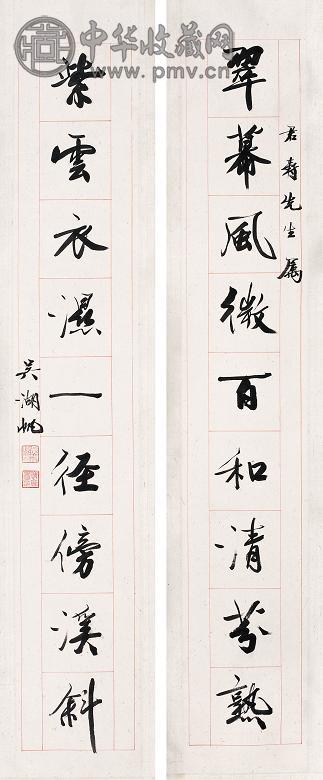 翠幕風微百和清芬熟
君壽先生屬
雲衣濕一徑傍溪斜
吳湖帆
中华收藏网
www.pmv.cn